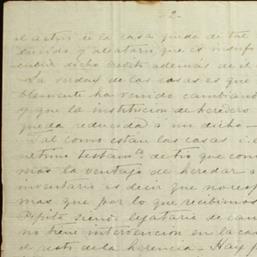 - 2 -
el activo de la casa queda de tal
suerte y aleatorio que es
cubrir dicho credito ademas del
La verdad de las cosas es que
blemente ha venido cambiando
y que la institucion de heredero
queda reducida á un dicho -
Tal como estan las cosas i.e.
ultimo testamto de tio que con
mas la ventaja de heredar a
inventario es decir que no resp
mas que por lo que recibimos
Pepita, siendo legataria de can
no tiene intervencion en la ca
el resto de la herencia - Hay p